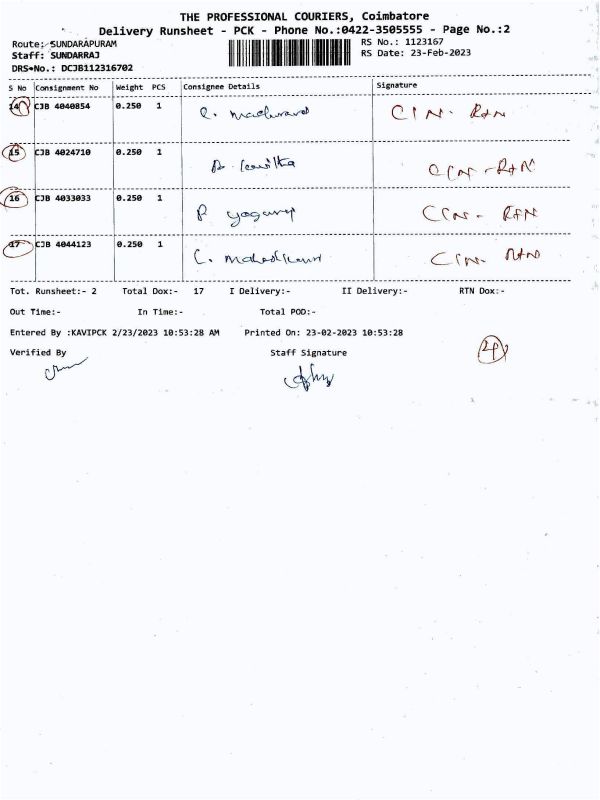 THE PROFESSIONAL COURIERS, Coimbatore
Delivery Runsheet - PCK - Phone No.:0422-3505555 - Page No.:2
Route: SUNDARAPURAM
RS No.: 1123167
Staff: SUNDARRAJ
RS Date: 23-Feb-2023
DRS No.: DCJB112316702
S No Consignment No Weight PCS Consignee Details Signature
14 CJB 4040854 0.250 1 CIN- RTN
15 CJB 4024710 0.250 1 CIN-RTN
16 CJB 4033033 0.250 1 CIN- RTN
17 CJB 4044123 0.250 1 CIN- RTN
Tot. Runsheet:- 2 Total Dox:- 17 I Delivery:- II Delivery:- RTN Dox:-
Out Time:- In Time:- Total POD:-
Entered By :KAVIPCK 2/23/2023 10:53:28 AM Printed On: 23-02-2023 10:53:28
Verified By Staff Signature